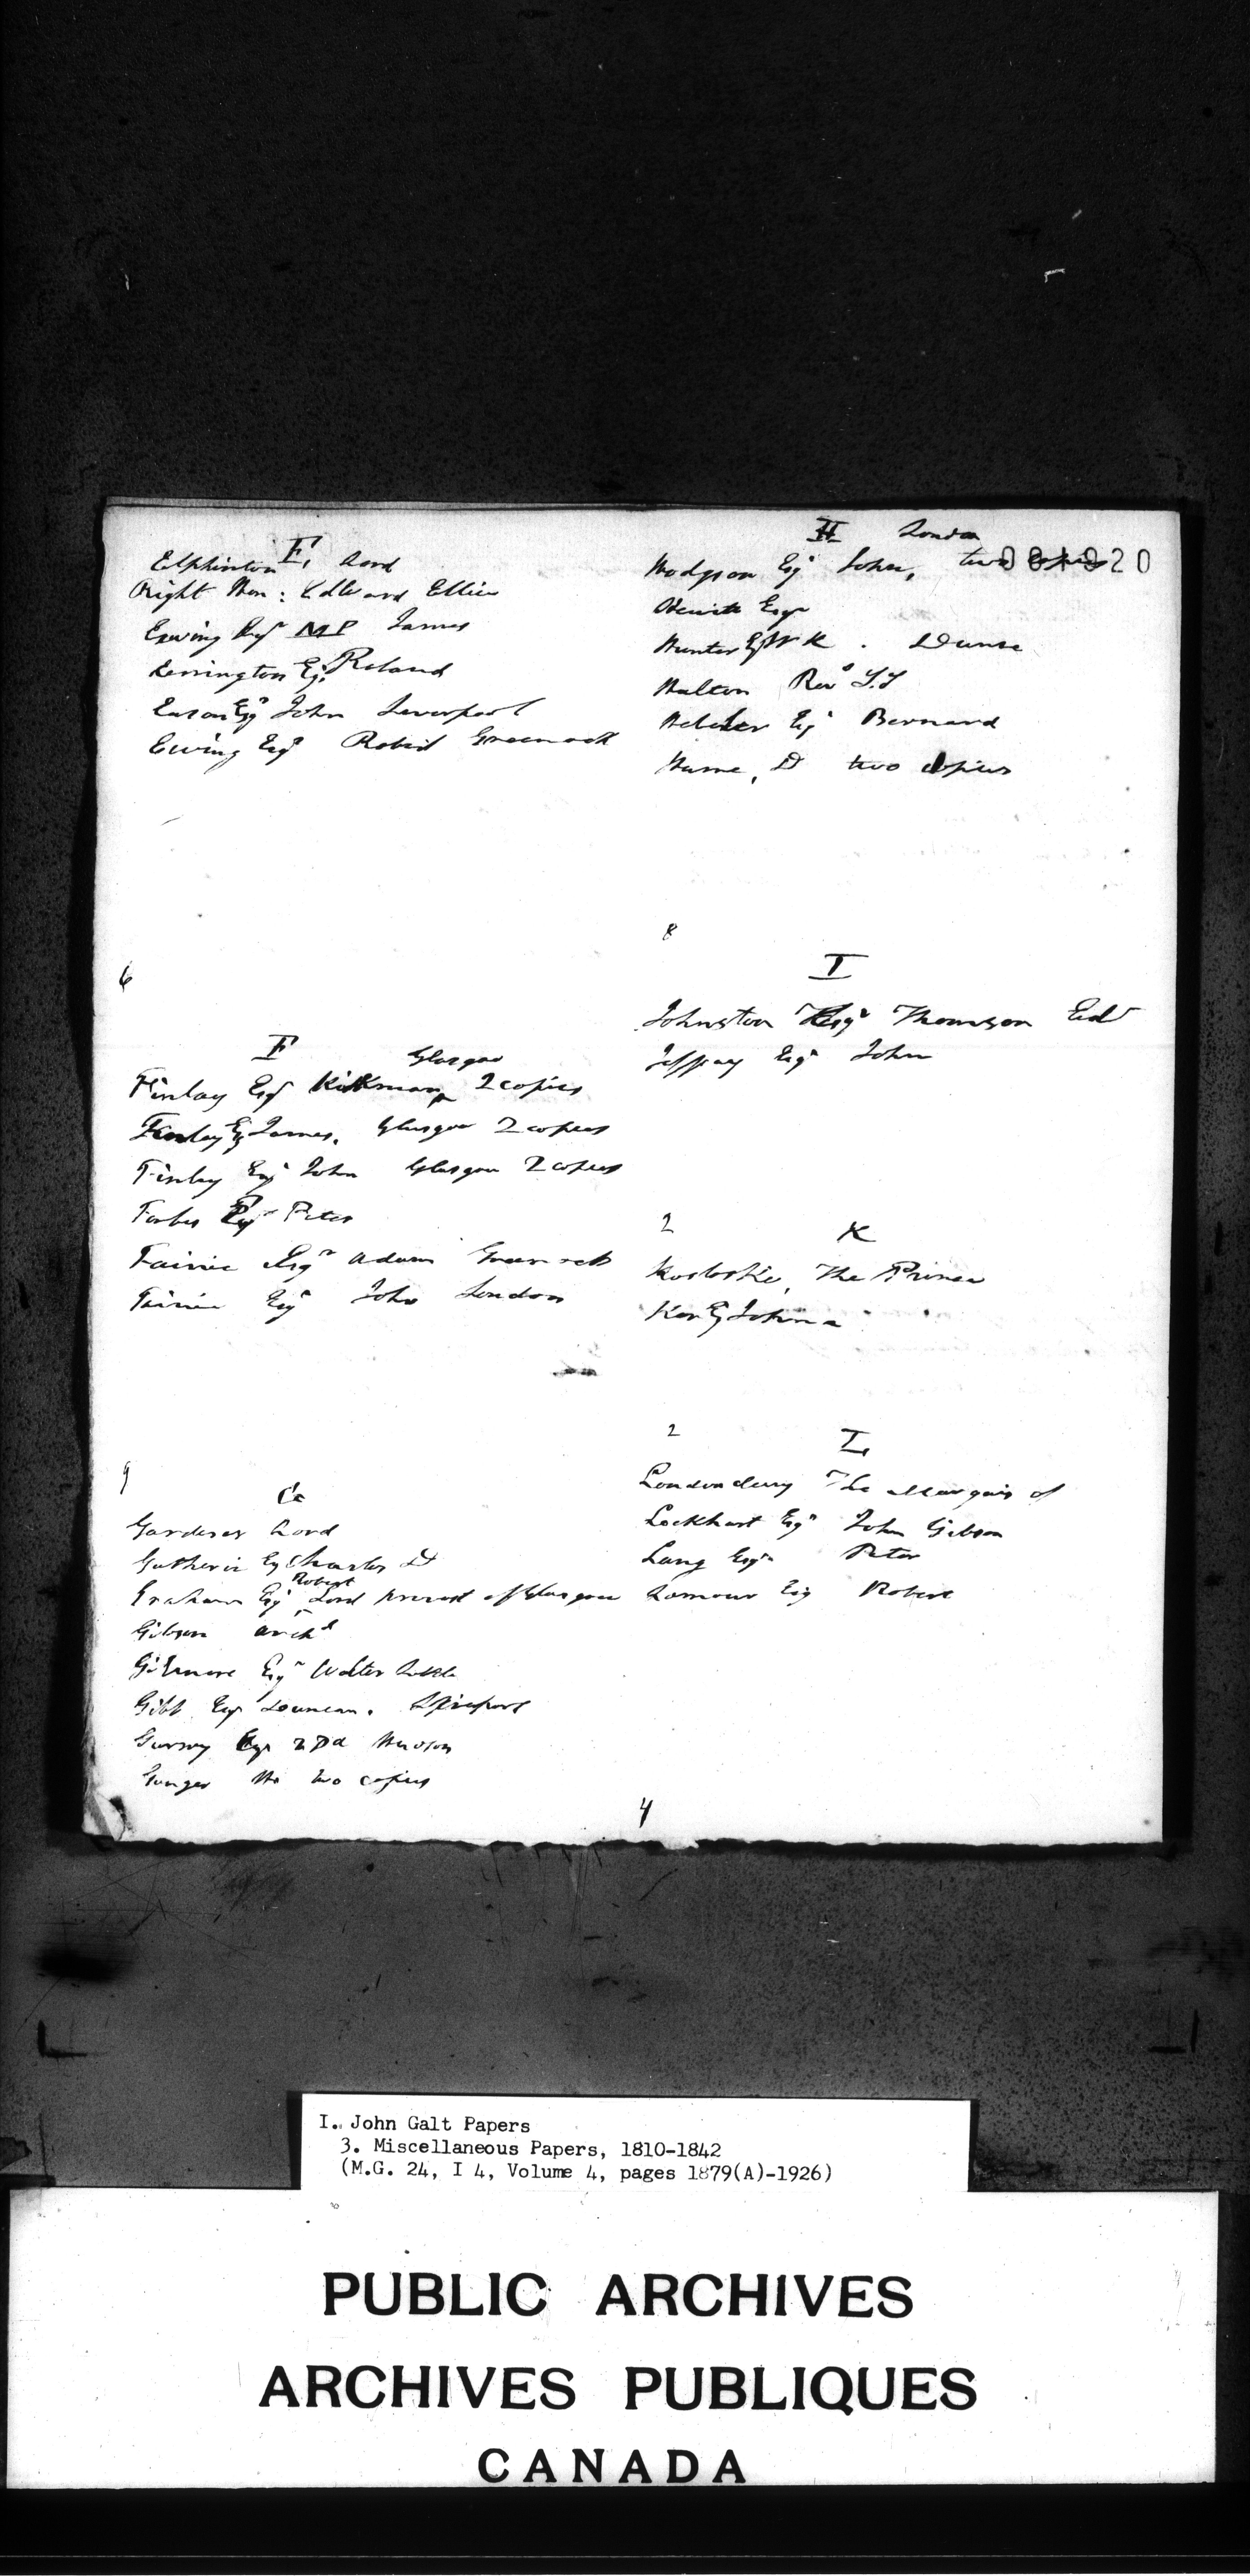 E
Elphinston Lord
Right Hon: Edward Ellice
Ewing Esqr MP James
Esqr Roland
Eason Esqr John Liverpool
Ewing Esqr Robert Greenock
6
F
Glasgow
Finlay Esqr Kirkman 2 copies
Finlay Esq James. Glasgow 2 copies
Finlay Esqr John Glasgow 2 copies
Forbes Esqr Peter
Fairrie Esqr Adam Greenock
Fairrie Esqr John London
9
G
Gardener Lord
Gutherie Esq Charles D
Robert
Graham Esqr Lord provost of Glasgow
Gibson Archd
Gilmore Esqr Walter
Gibb Esqr Duncan. Liverpool
Gurney Esqr Hudson
two copies
H London
Hodgson Esqr John, two copies
Hewitt Esqr
Hunter Esqr Dunse
Halton Revd
Esqr Bernard
Hume, D two copies
8
I
Johnston Esqr Thomson Ed
Jeffray Esqr John
2
K
The Prince
Ker Esq John
2
L
Londonderry The Marquis of
Lockhart Esqr John Gibson
Lang Esqr Peter
Lamour Esq Robert
4
20
I. John Galt Papers
3. Miscellaneous Papers, 1810-1842
(M.G. 24, I 4, Volume 4, pages 1879(A)-1926)
PUBLIC ARCHIVES
ARCHIVES PUBLIQUES
CANADA